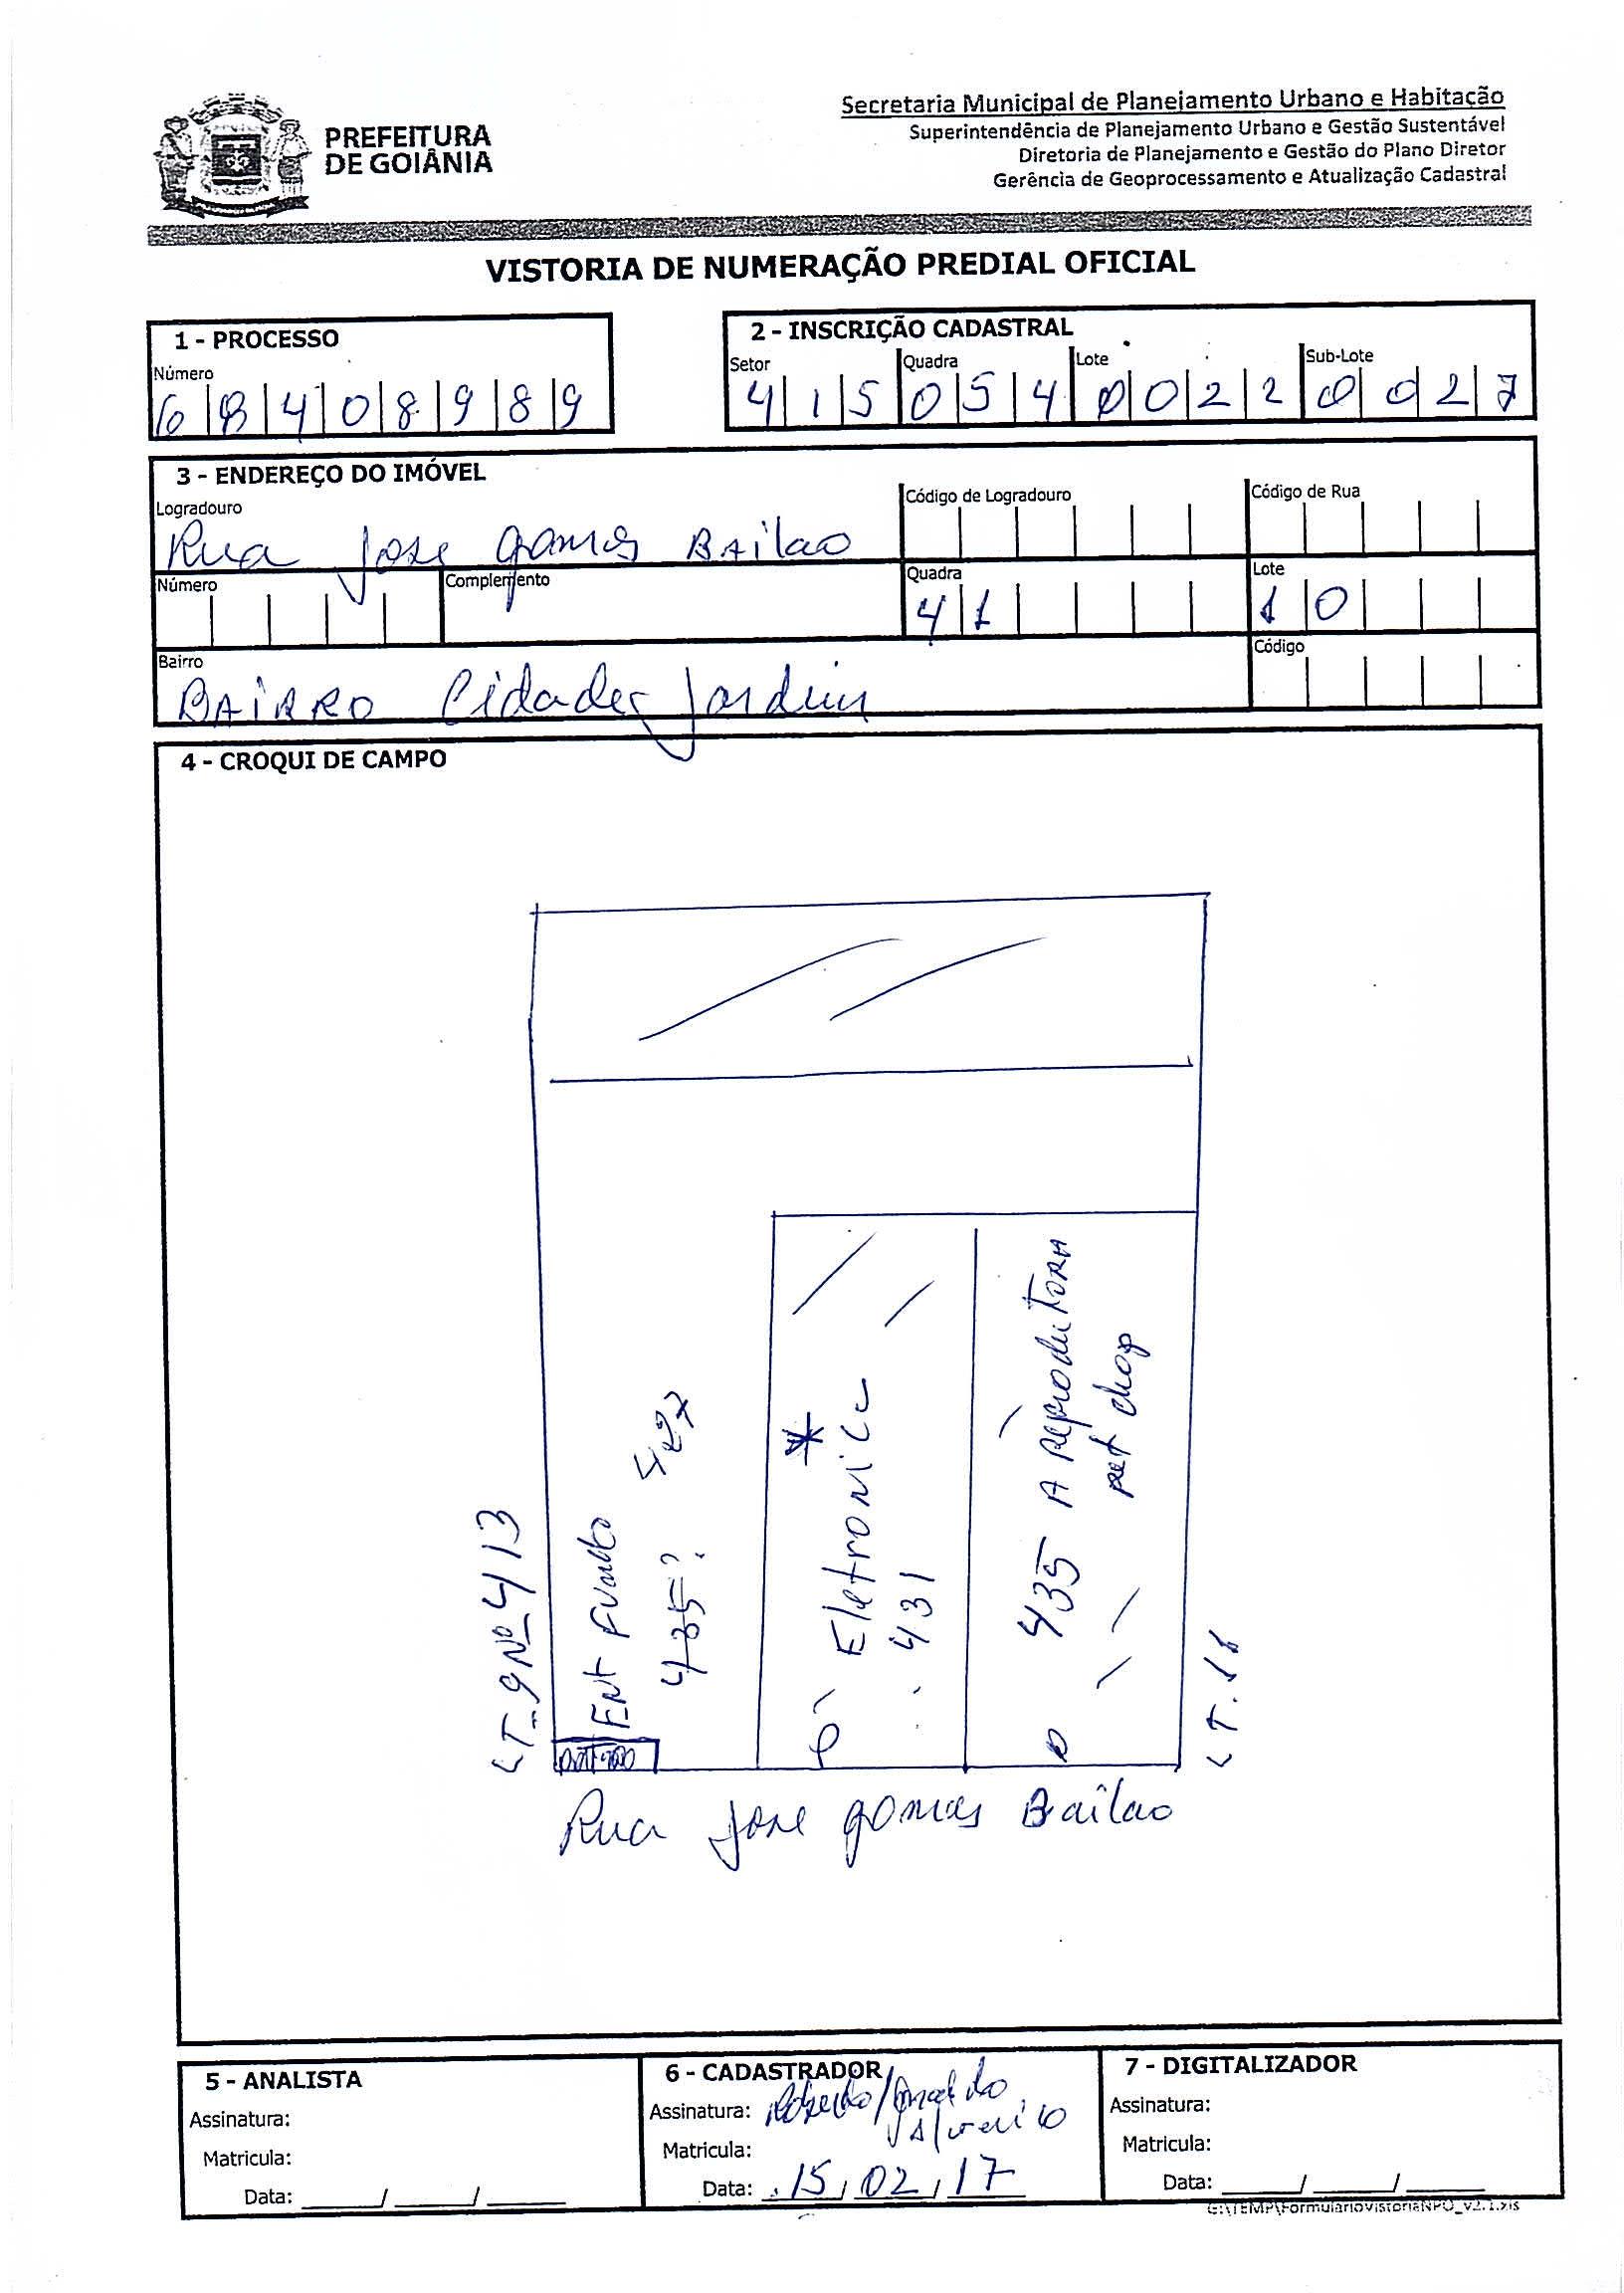 PREFEITURA
DE GOIÂNIA
Secretaria Municipal de Planejamento Urbano e Habitação
Superintendência de Planejamento Urbano e Gestão Sustentável
Diretoria de Planejamento e Gestão do Plano Diretor
Gerência de Geoprocessamento e Atualização Cadastral
VISTORIA DE NUMERAÇÃO PREDIAL OFICIAL
1 - PROCESSO
Número
6 8 4 0 8 9 8 9
2 - INSCRIÇÃO CADASTRAL
Setor Quadra Lote Sub-Lote
4 1 5 0 5 4 0 0 2 2 0 0 2 7
3 - ENDEREÇO DO IMÓVEL
Logradouro Código de Logradouro Código de Rua
Rua Jose gomes BAilao
Número Complemento Quadra Lote
4 1 1 0
Bairro Código
BAIRRO Cidades Jardim
4 - CROQUI DE CAMPO
LT_9 Nº 413
Ent Fundo
435? 427
* Eletronica
431
435 A ReproduTORA
pet shop
LT. 11
Rua Jose gomes Bailao
5 - ANALISTA
Assinatura:
Matricula:
Data: ____/____/____
6 - CADASTRADOR
Assinatura: Roberto/
Matricula:
Data: 15/02/17
7 - DIGITALIZADOR
Assinatura:
Matricula:
Data: ____/____/____
G:\TEMP\FormularioVistoriaNPO_v2.1.xls